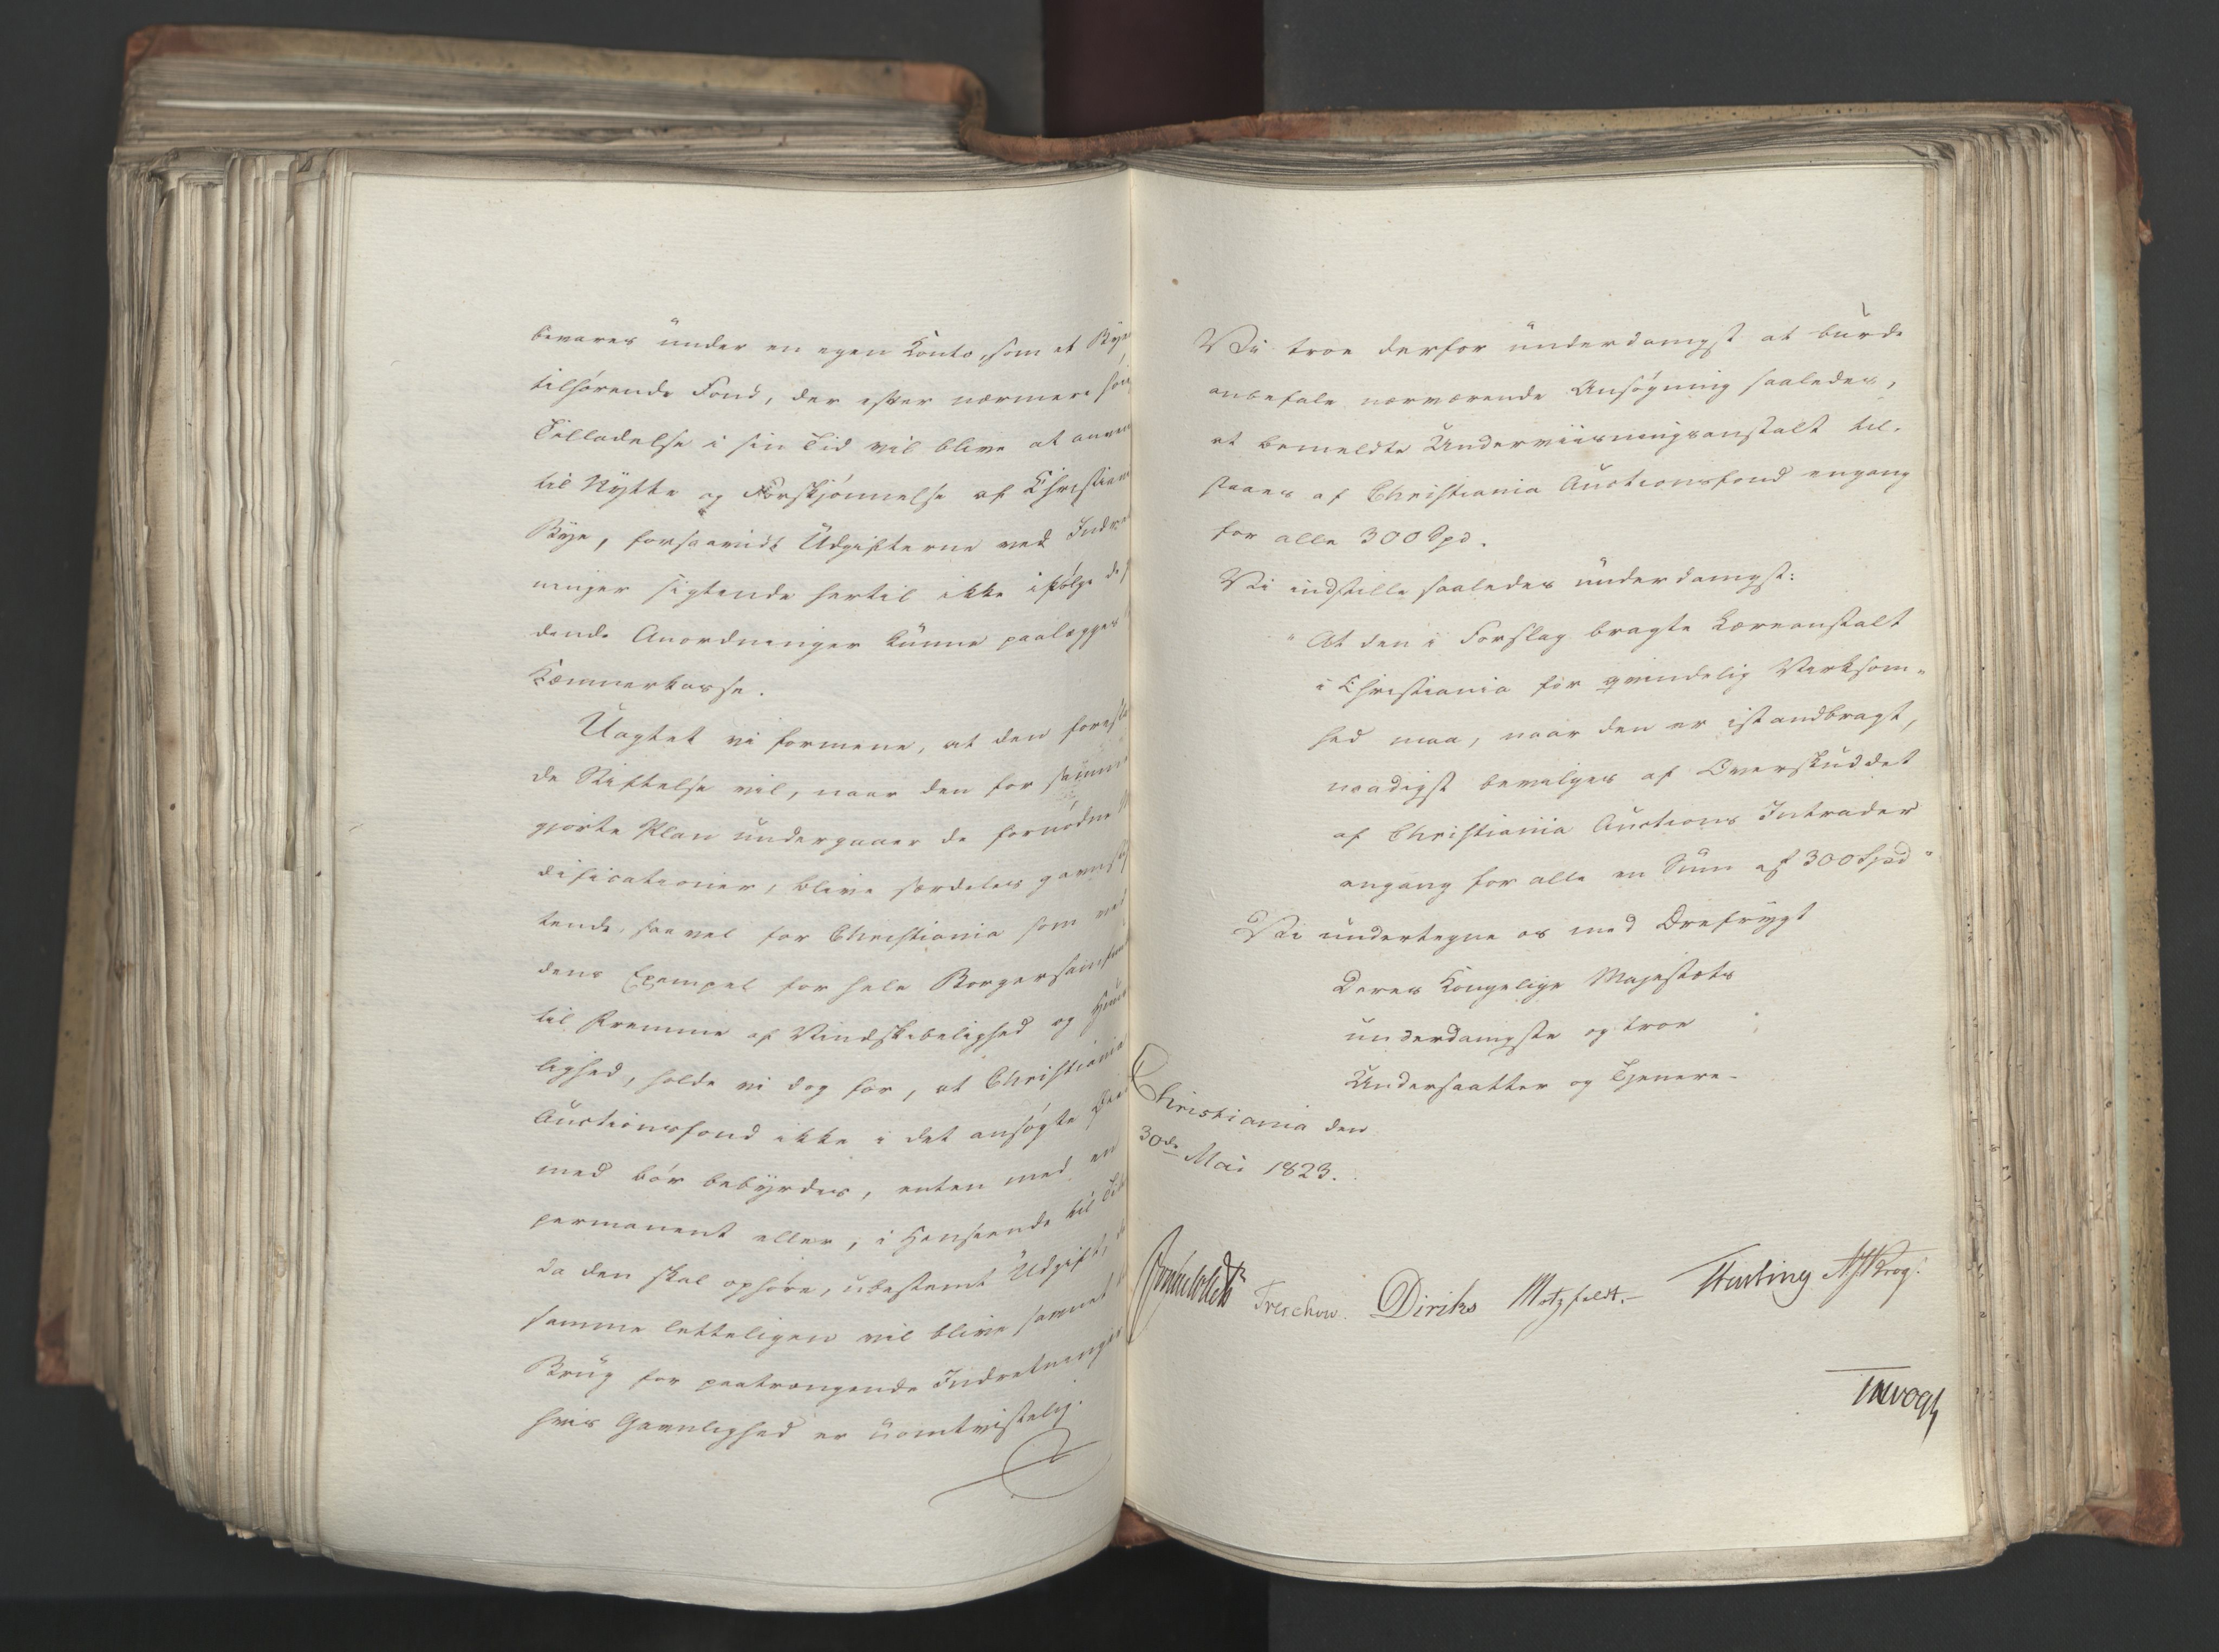 bevares under en egen Conto, som et Bye
tilhørende Fond, der efter nærmere
Tilladelse i sin Tid vil blive at
til Nytte og Forskjønnelse af Christian
Bye, forsaavidt Udgifterne ved Indret
ninger sigtende hertil ikke ifølge
dende Anordninger kunne paalægges
Kæmnerkassa.
Uagtet vi formene, at den
de Stiftelse vil, naar den for samme
gjorte Plan undergaaer de fornødne
dificationer, blive særdeles
tende, saavel for Christiania som ved
dens Exempel for hele Borgersamfun
til Fremme af Vindskibelighed og
lighed, holde vi dog for, at Christiania
Auctionsfond ikke i det ansøgte
med bør bebyrdes, enten med en
permanent eller, i Henseende til Tid
da den skal ophøre, ubestemt Udgift,
samme letteligen vil blive savnet
Brug for paatrængende Indretninger
hvis Gavnlighed er uomtvistelig.
Vi troe derfor underdanigst at burde
anbefale nærværende Ansøgning saaledes,
at bemeldte Underviisningsanstalt til-
staaes af Christiania Auctionsfond engang
for alle 300 Spd.
Vi indstille saaledes underdanigst:
"At den i Forslag bragte Læreanstalt
i Christiania for qvindelig Virksom-
hed maa, naar den er istandbragt,
naadigst bevilges af Overskuddet
af Christiania Auctions Intrader
engang for alle en Sum af 300 Spd"
Vi undertegne os med Ærefrygt
Deres Kongelige Majestæts
underdanigste og troe
Undersaatter og Tjenere.
Christiania den
30de Mai 1823.
Treschow. Diriks Motzfeldt. Fasting Krog.